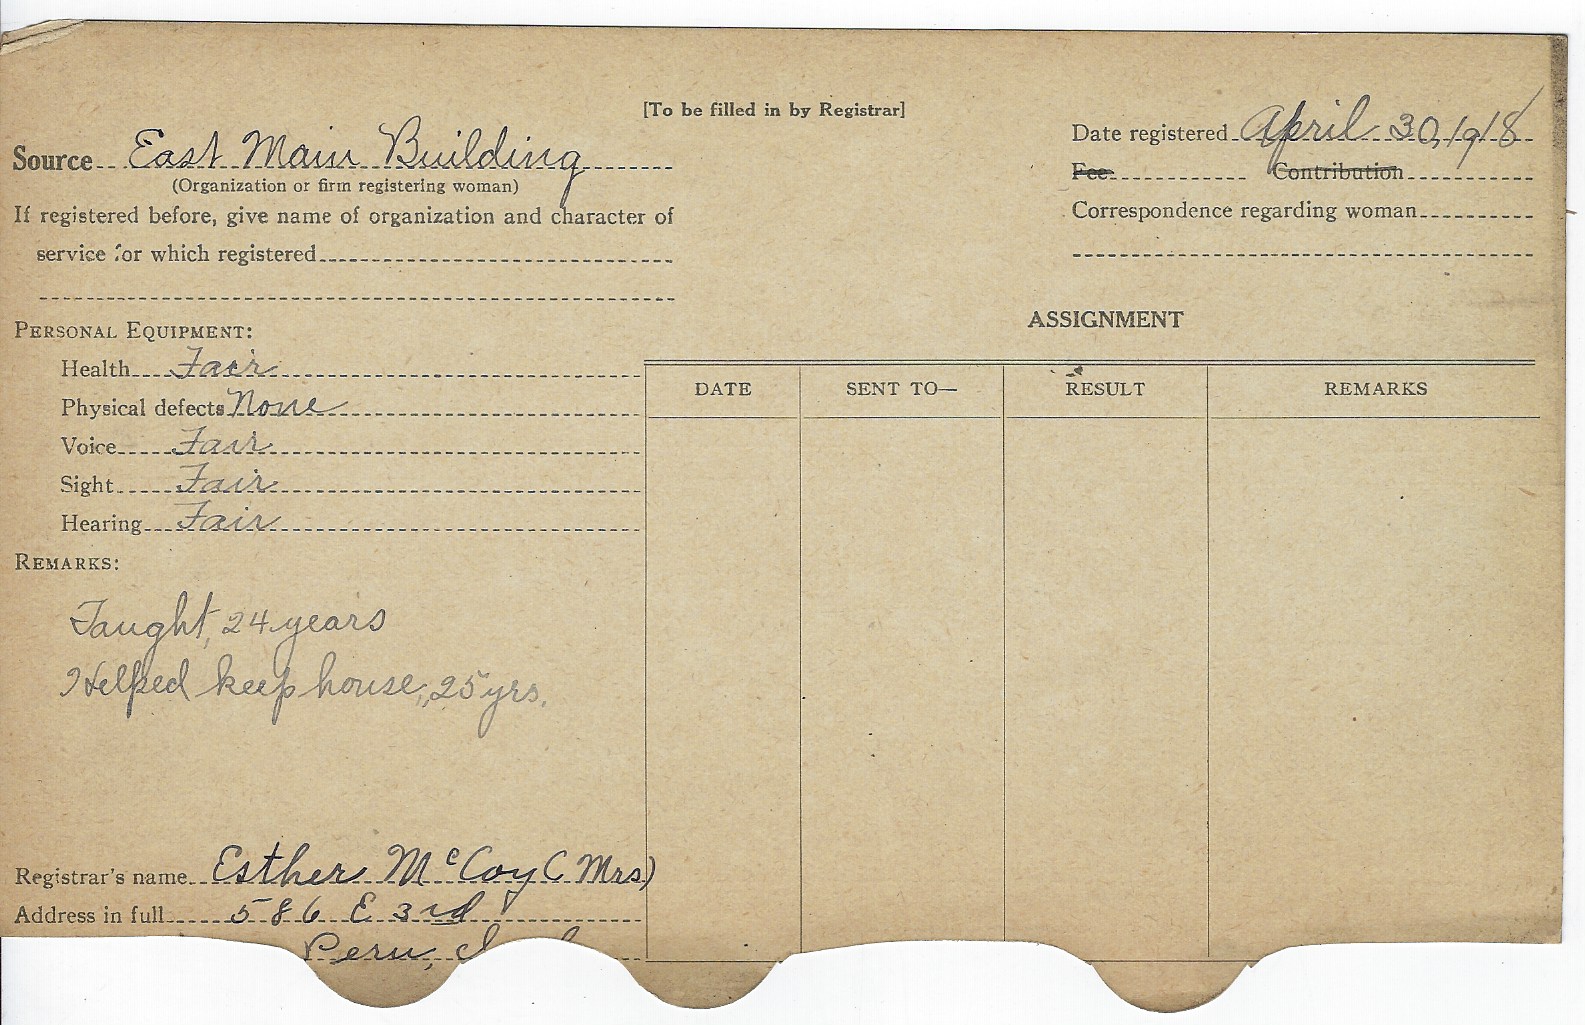 [To be filled in by Registrar]
Date registered April 30, 1918
Source East Main Building
(Organization or firm registering woman)
Fee Contribution
If registered before, give name of organization and character of
service for which registered
Correspondence regarding woman
PERSONAL EQUIPMENT:
Health Fair
Physical defects None
Voice Fair
Sight Fair
Hearing Fair
ASSIGNMENT
DATE SENT TO— RESULT REMARKS
REMARKS:
Taught, 24 years
Helped keep house, 25 yrs.
Registrar's name Esther McCoy (Mrs)
Address in full 586 E 3rd
Peru,